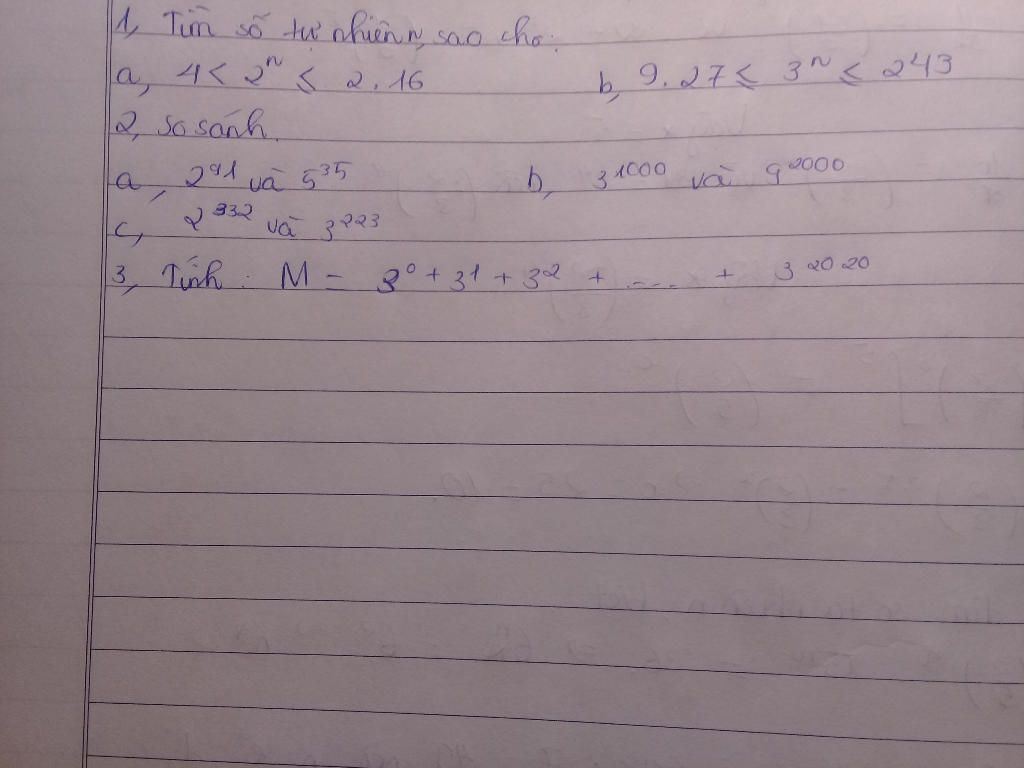 1, Tìm số tự nhiên n, sao cho:
a, 4 < 2ⁿ ≤ 2.16 b, 9.27 ≤ 3ⁿ ≤ 243
2, So sánh
a, 2⁹¹ và 5³⁵ b, 3¹⁰⁰⁰ và 9²⁰⁰⁰
c, 2³³² và 3²²³
3, Tính: M = 3⁰ + 3¹ + 3² + ..... + 3²⁰²⁰